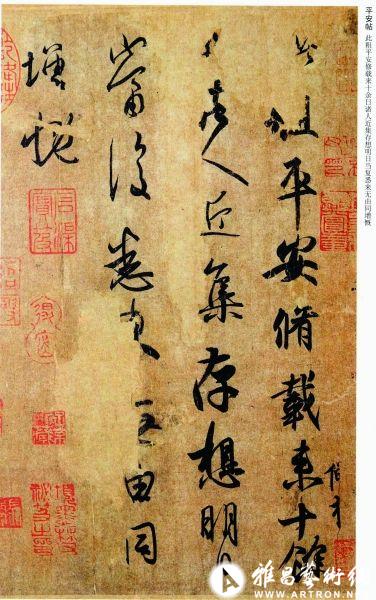 平安帖 此粗平安修载来十余日诸人近集存想明日当复悉来无由同增慨
此粗平安脩載来十餘
日諸人近集存想明日
當復悉来无由同
增慨
雅昌藝術網
WWW.ARTRON.NET